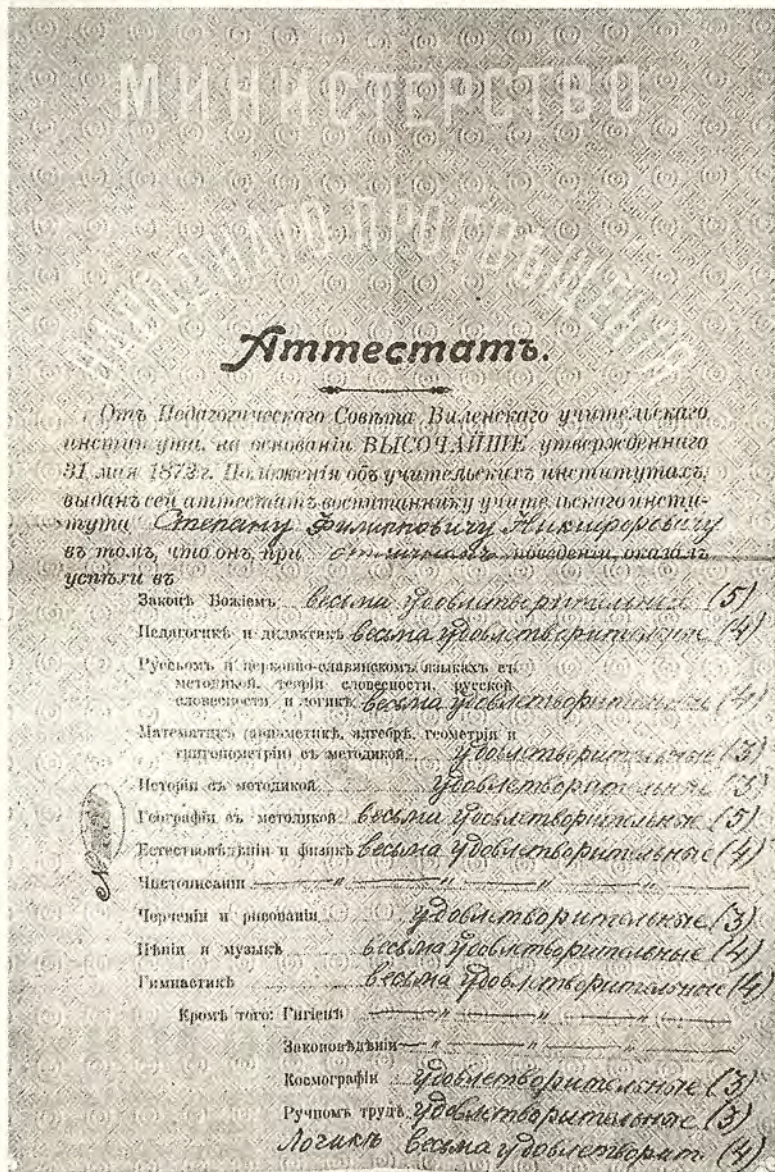 МИНИСТЕРСТВО
НАРОДНАГО ПРОСВѢЩЕНІЯ
Аттестатъ.
Отъ Педагогическаго Совѣта Виленскаго учительскаго
института, на основаніи ВЫСОЧАЙШЕ утвержденнаго
31 мая 1872 г. Положенія объ учительскихъ институтахъ,
выданъ сей аттестатъ воспитаннику учительскаго инсти-
тута Степану Филипповичу Никифоровичу
въ томъ, что онъ, при отличномъ поведеніи, оказалъ
успѣхи въ
Законѣ Божіемъ весьма удовлетворительные (5)
Педагогикѣ и дидактикѣ весьма удовлетворительные (4)
Русскомъ и церковно-славянскомъ языкахъ съ
методикой, теоріи словесности, русской
словесности и логикѣ весьма удовлетворительные (4)
Математикѣ (ариѳметикѣ, алгебрѣ, геометріи и
тригонометріи) съ методикой удовлетворительные (3)
Исторіи съ методикой удовлетворительные (3)
Географіи съ методикой весьма удовлетворительные (5)
Естествовѣдѣніи и физикѣ весьма удовлетворительные (4)
№
Чистописаніи — " — " — " — " —
Черченіи и рисованіи удовлетворительные (3)
Пѣніи и музыкѣ весьма удовлетворительные (4)
Гимнастикѣ весьма удовлетворительные (4)
Кромѣ того: Гигіенѣ — " — " — " —
Законовѣдѣніи — " — " — " —
Космографіи удовлетворительные (3)
Ручномъ трудѣ удовлетворительные (3)
Логикѣ весьма удовлетворит. (4)